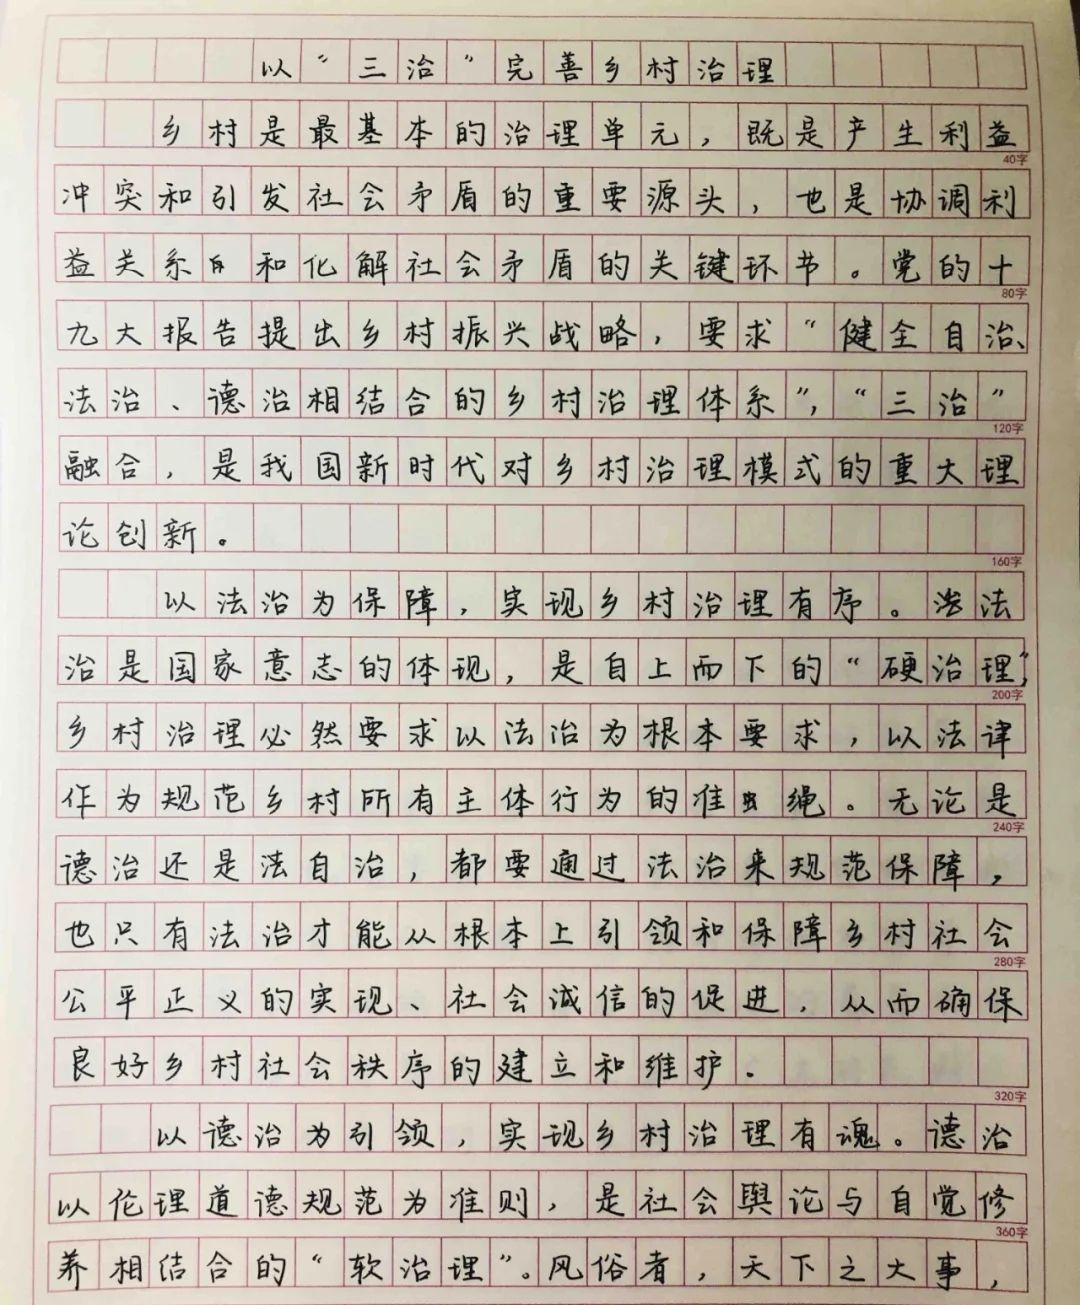 以“三治”完善乡村治理
乡村是最基本的治理单元，既是产生利益
40字
冲突和引发社会矛盾的重要源头，也是协调利
益关系和化解社会矛盾的关键环节。党的十
80字
九大报告提出乡村振兴战略，要求“健全自治、
法治、德治相结合的乡村治理体系”，“三治”
120字
融合，是我国新时代对乡村治理模式的重大理
论创新。
160字
以法治为保障，实现乡村治理有序。法
治是国家意志的体现，是自上而下的“硬治理”，
200字
乡村治理必然要求以法治为根本要求，以法律
作为规范乡村所有主体行为的准绳。无论是
240字
德治还是法自治，都要通过法治来规范保障，
也只有法治才能从根本上引领和保障乡村社会
280字
公平正义的实现、社会诚信的促进，从而确保
良好乡村社会秩序的建立和维护.
320字
以德治为引领，实现乡村治理有魂。德治
以伦理道德规范为准则，是社会舆论与自觉修
360字
养相结合的“软治理”。风俗者，天下之大事，